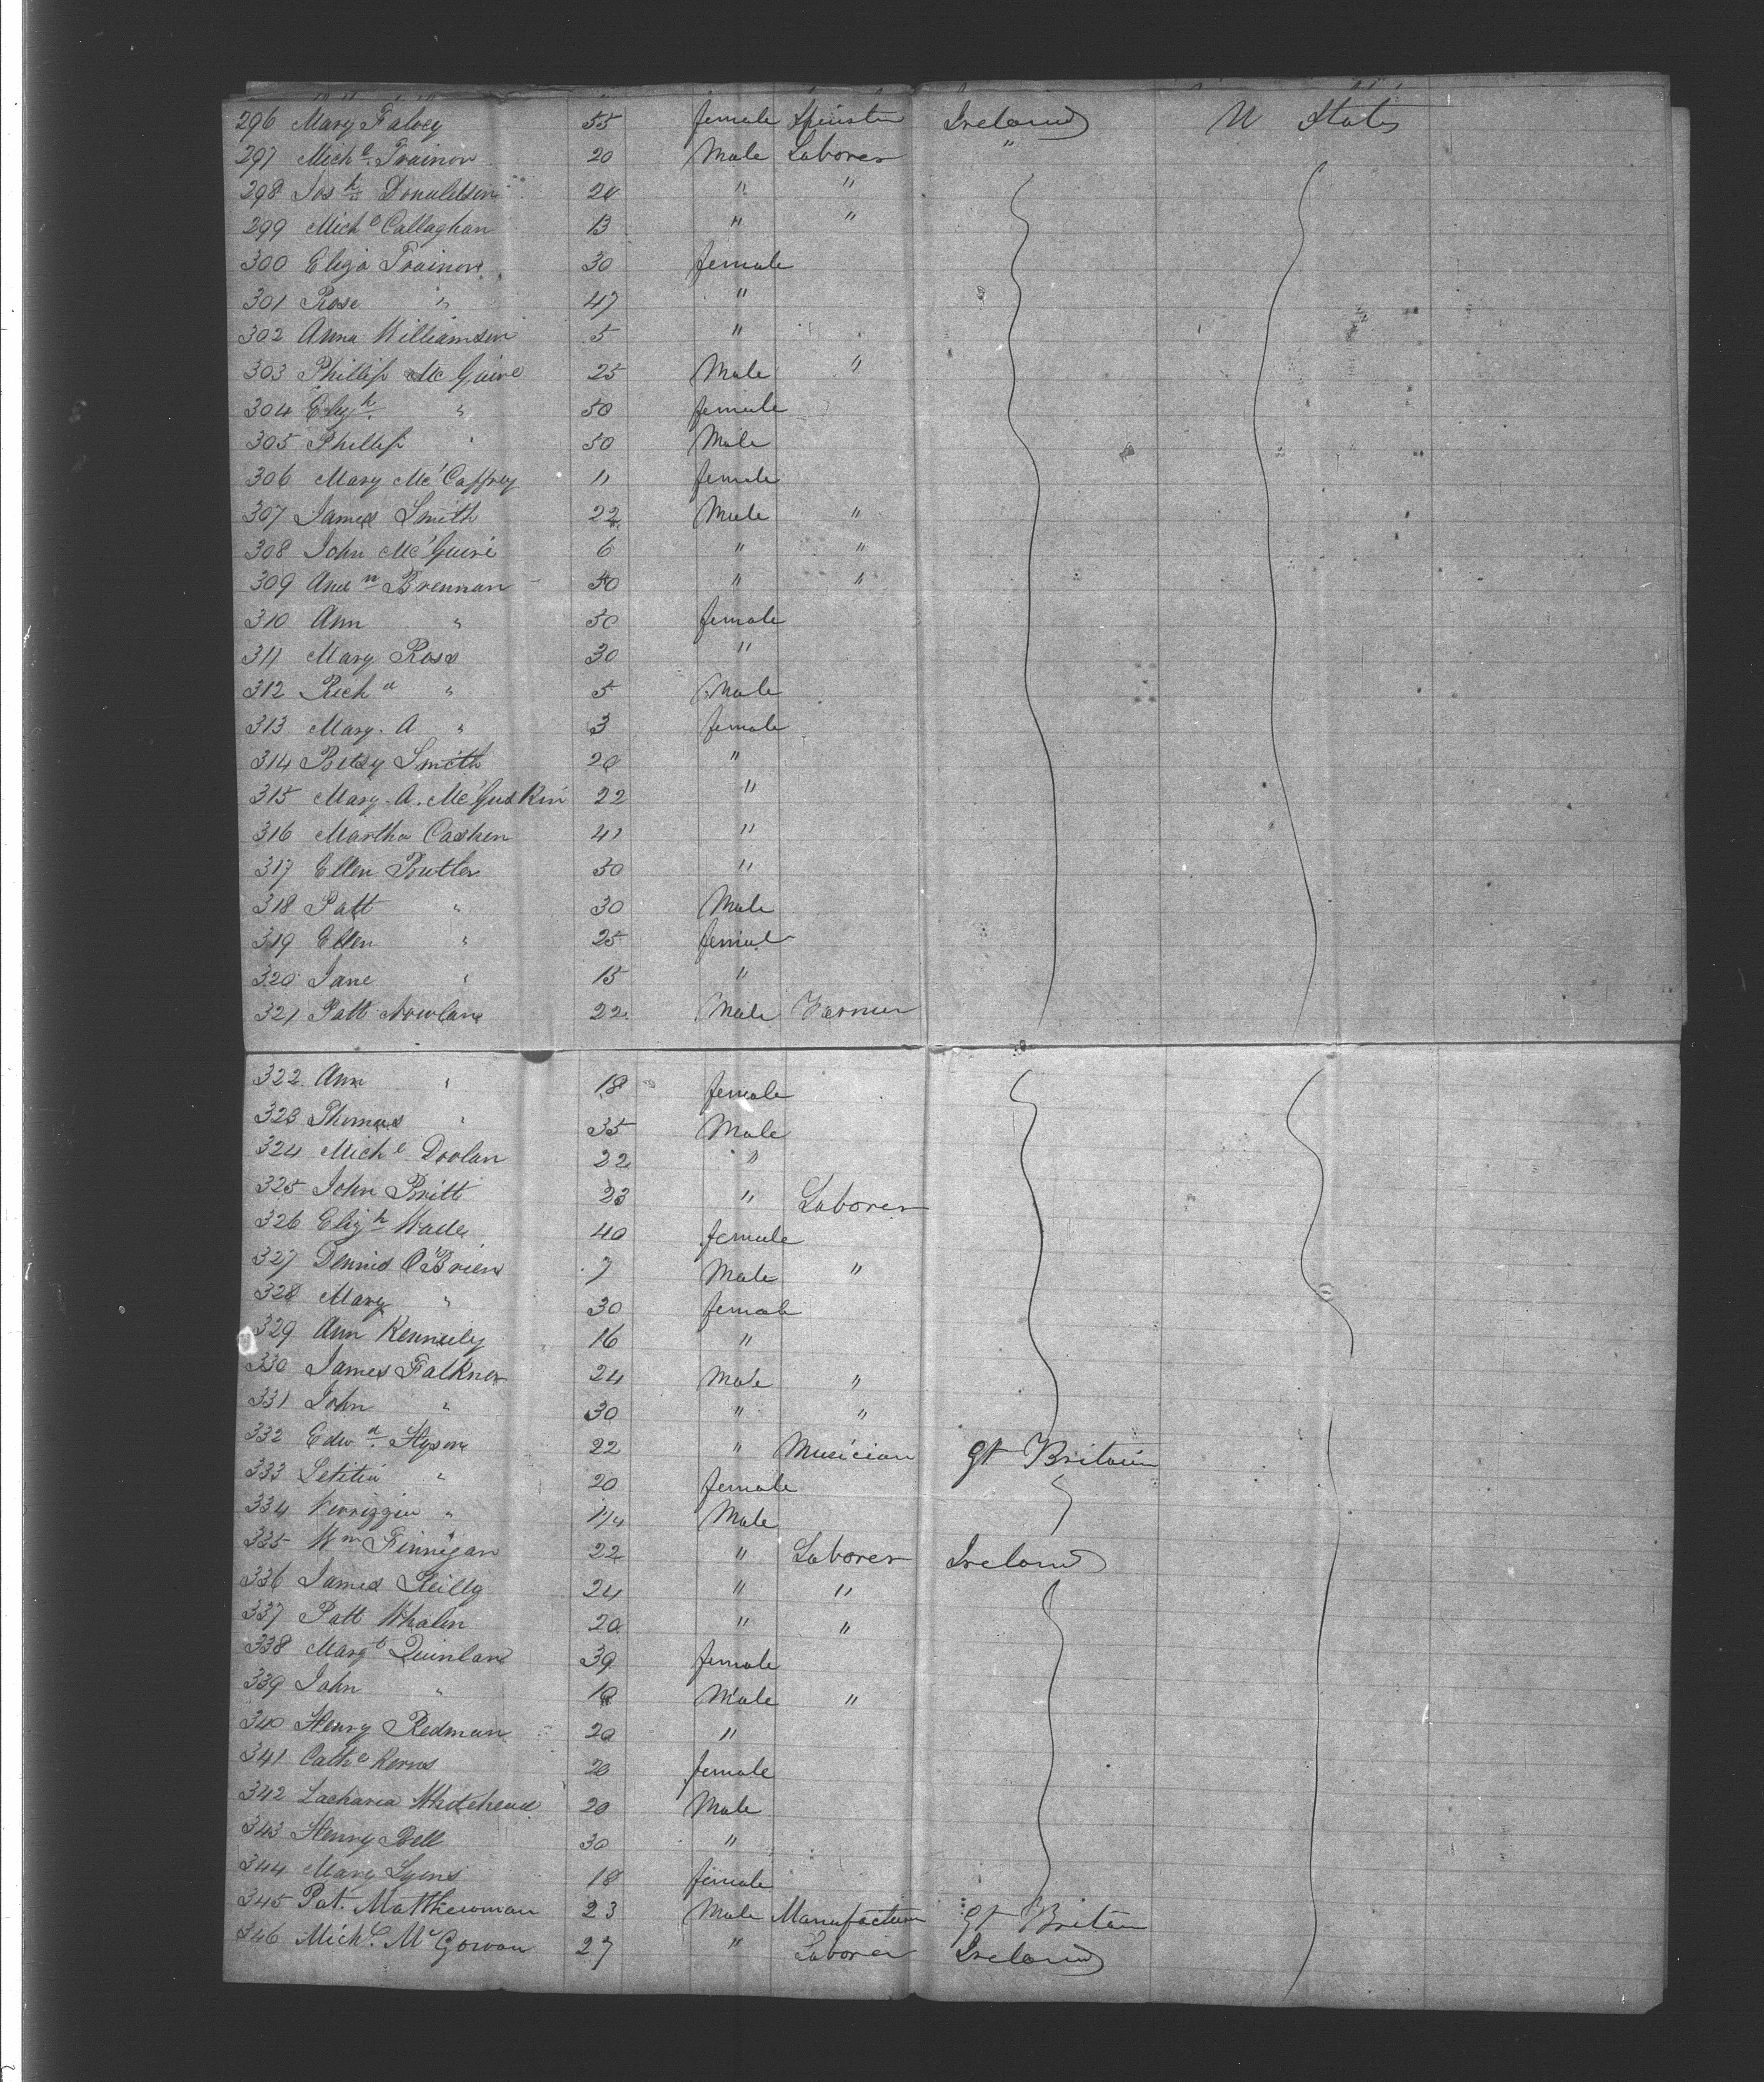 296 Mary Falvey 55 female Spinster Ireland U States
297 Mich l. Trainor 20 Male Laborer "
298 Jos h Donaldson 20 " "
299 Mich l Callaghan 13 " "
300 Eliza Trainor 30 female
301 Rose " 47 "
302 Anna Williamson 5 "
303 Phillip Mc Guire 25 Male "
304 Eliz h. " 50 female
305 Phillip " 50 Male
306 Mary Mc'Caffrey 11 female
307 James Smith 22 Male "
308 John Mc'Guire 6 " "
309 And w Brennan 50 " "
310 Ann " 50 female
311 Mary Ross 30 "
312 Rich d " 5 Male
313 Mary. A " 3 female
314 Betsy Smith 20 "
315 Mary. A. Mc'Guskin 22 "
316 Martha Casken 41 "
317 Ellen Butler 50 "
318 Patt " 30 Male
319 Ellen " 25 female
320 Jane " 15 "
321 Patt Nowlane 22 Male Farmer
322 Ann " 18 female
323 Thomas " 35 Male
324 Mich l Doolan 22 "
325 John Britt 23 " Laborer
326 Eliz h Wade 40 female
327 Dennis O'Brien 7 Male "
328 Mary " 30 female
329 Ann Kenneily 16 "
330 James Falkner 24 Male "
331 John " 30 " "
332 Edw d. Hyson 22 " Musician Gt Britain
333 Letitia " 20 female
334 " Male
335 Wm Finnigan 22 " Laborer Ireland
336 James Reilly 24 " "
337 Patt Whalen 20 " "
338 Marg t Quinlan 39 female
339 John " 10 Male "
340 Henry Redman 20 "
341 Cath e Kerns 20 female
342 Zacharia Whitehead 20 Male
343 Henry Bell 30 "
344 Mary Lyons 18 female
345 Pat. Matthewman 23 Male Manufacturer Gt Britain
346 Mich l. Mc Gowan 27 " Laborer Ireland